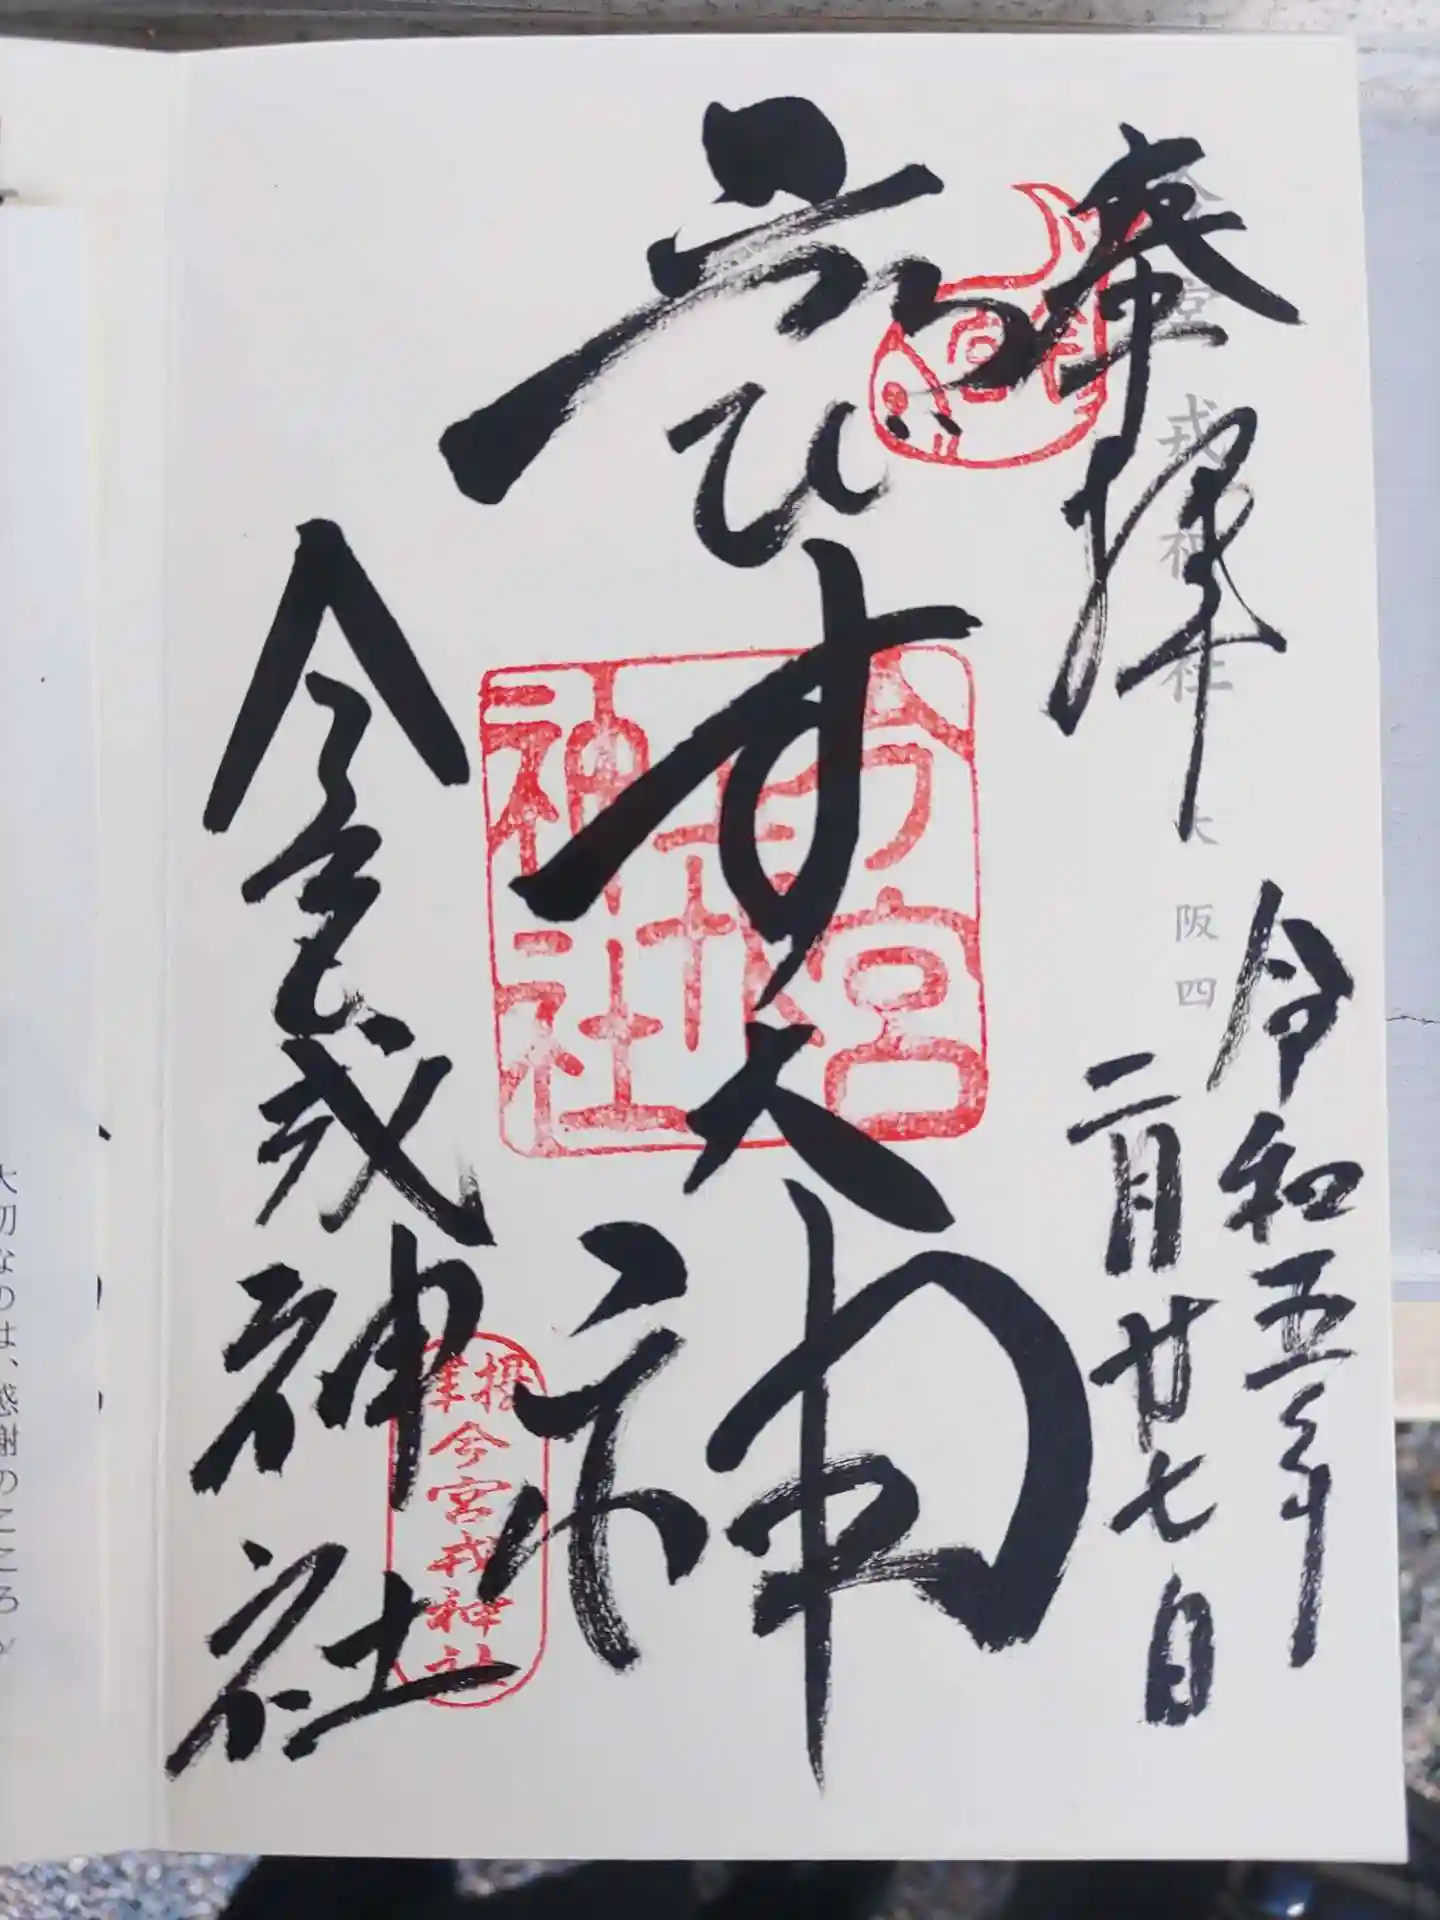 奉拝
今宮戎神社
大阪四
令和五年
二月廿七日
ゑびす大神
今宮戎神社
今宮戎神社
摂津
今宮戎神社
大切なのは、感謝のこころ